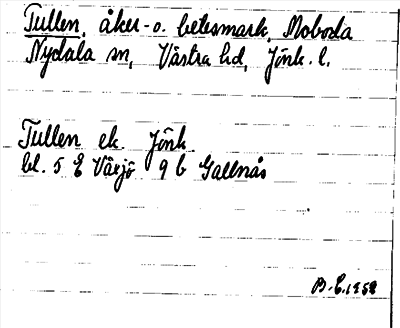 Tullen, åker- o. betesmark, Moboda
Nydala sn, Västra hd, Jönk. l.
Tullen ek. Jönk.
bl. 5 E Växjö 9 b Gallnås
B.E. 1958